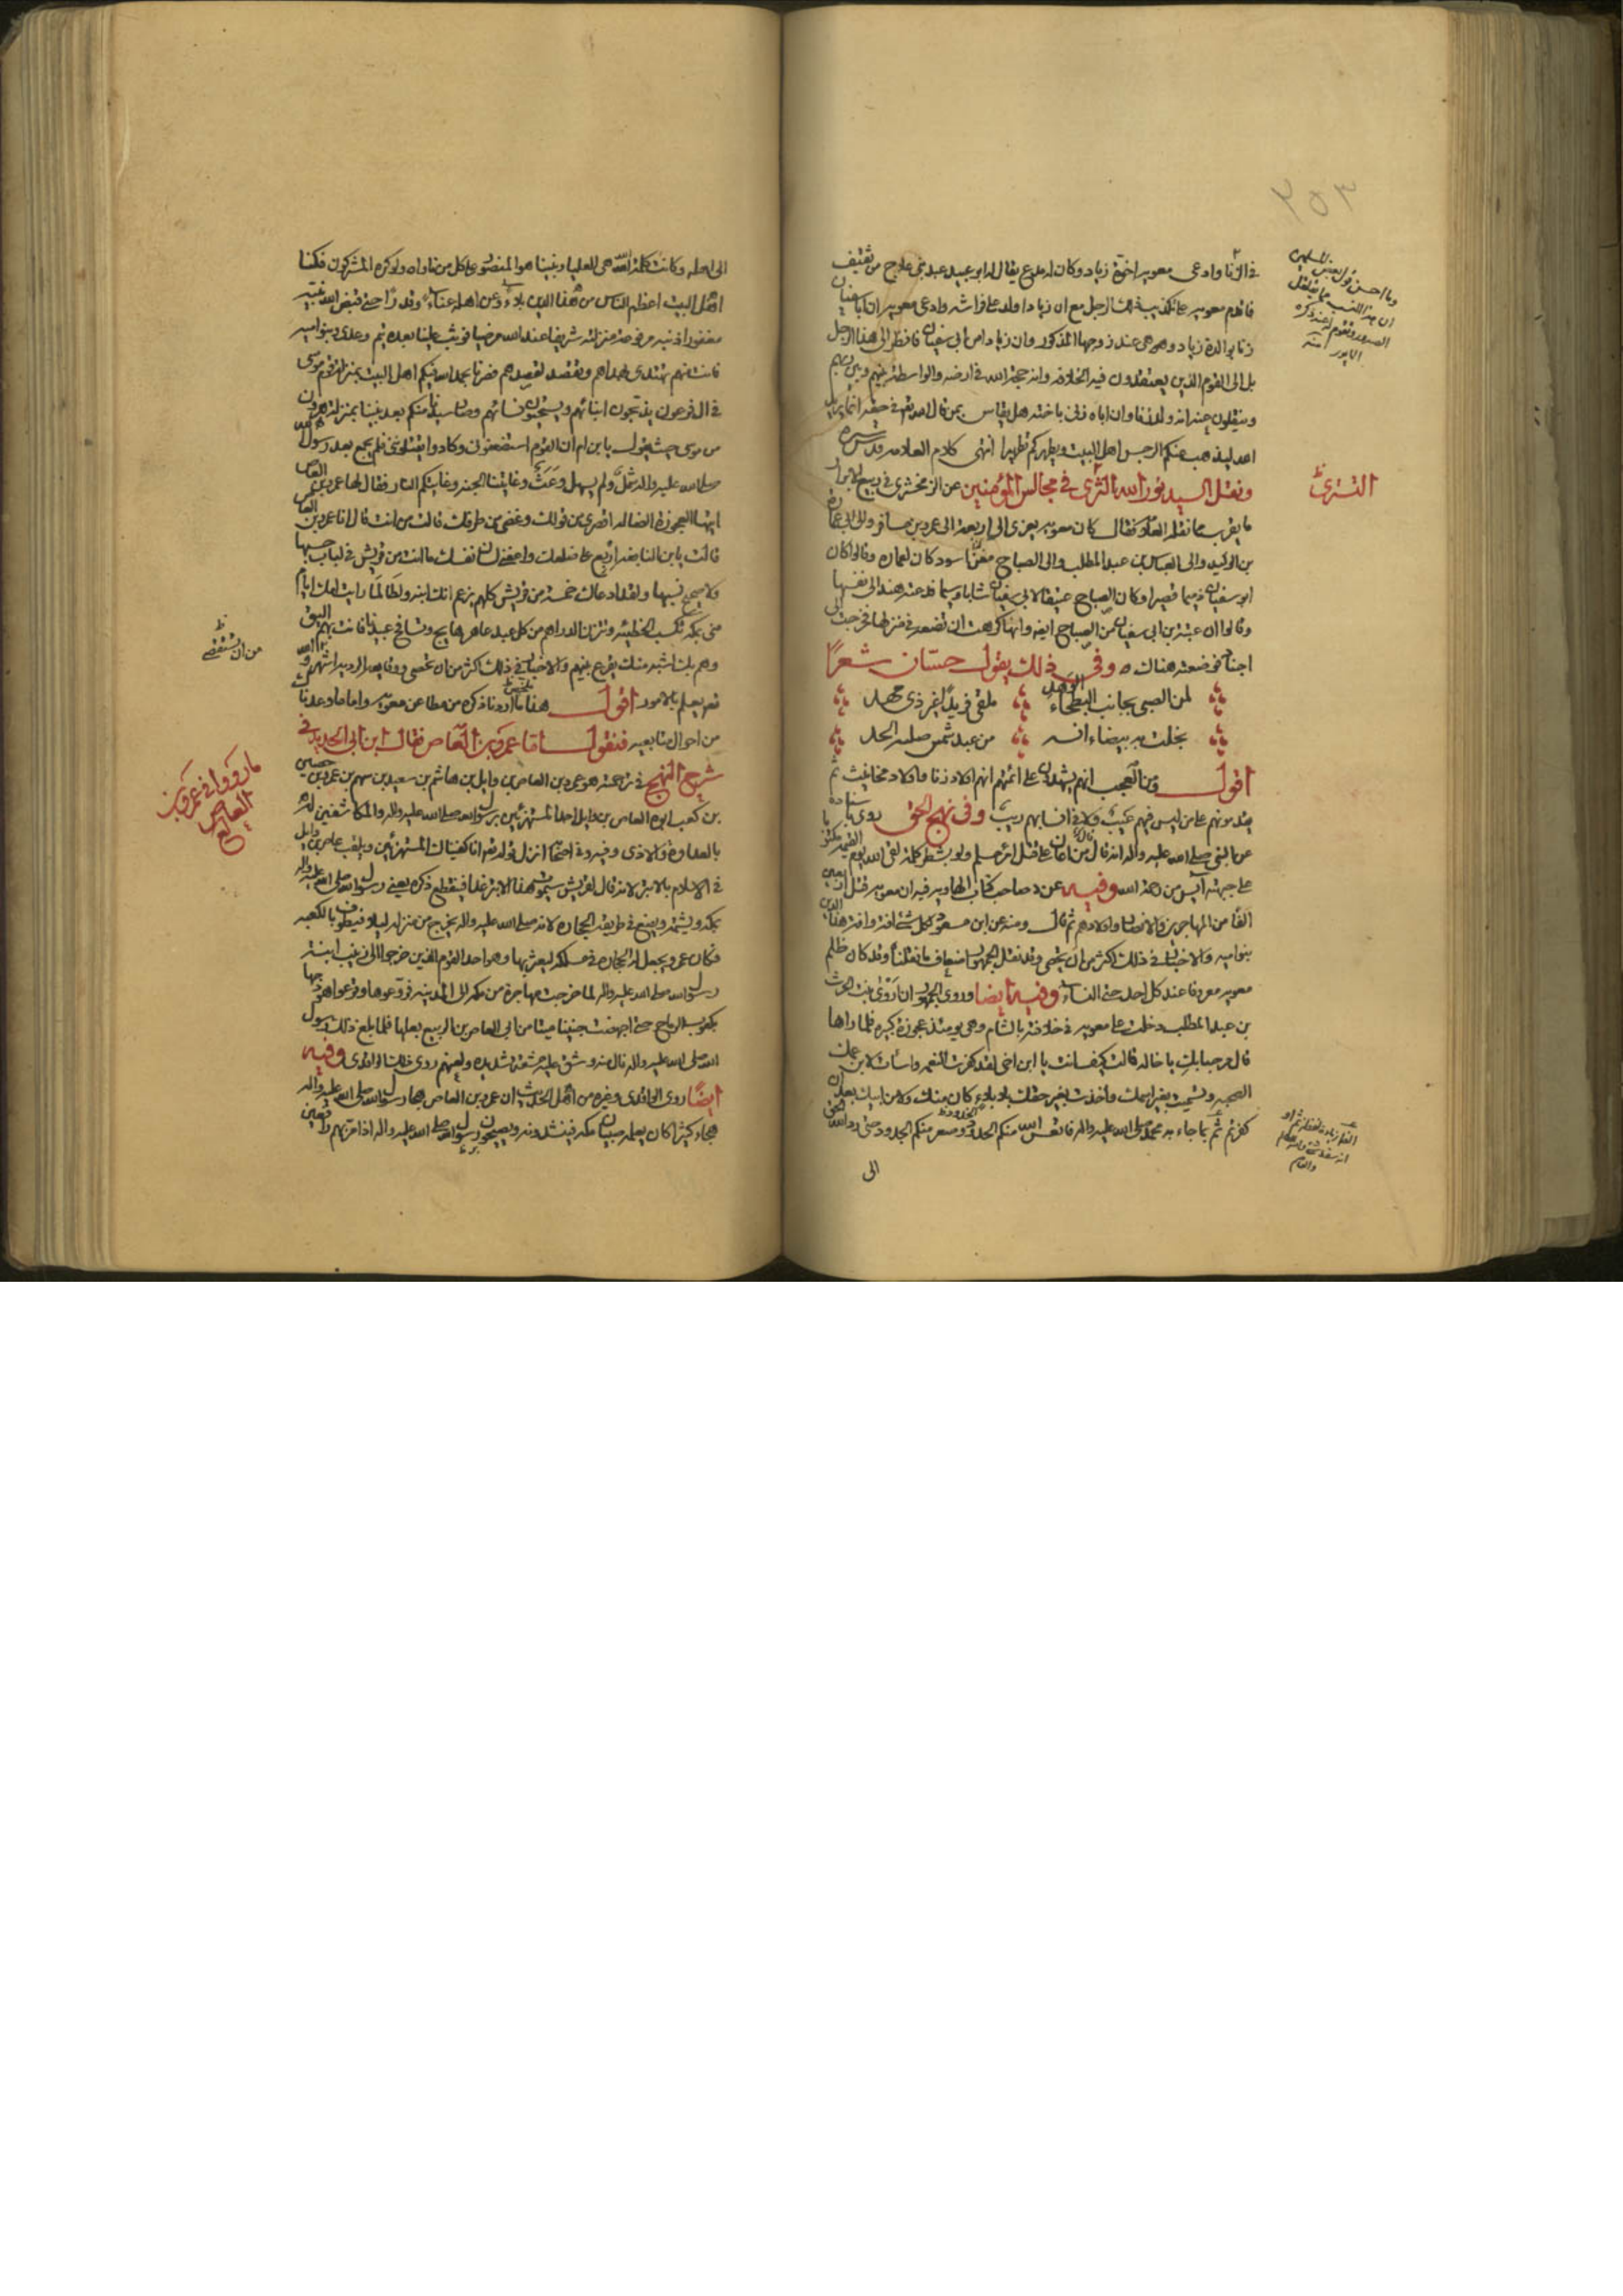 ٢٥٣
في الزنا وادعى معويه اخوة زياد وكان له مدع يقال له ابو عبيد عبد بني علاج من ثقيف
فاقدم معويه على تكذيب ذلك الرجل مع ان زيادا ولد على فراشه وادعى معويه ان ابا سفيان
زنا بوالدة زياد وهو هي عند زوجها المذكور وان زيادا من ابي سفيان فانظر الى هذا الرجل
بل الى القوم الذين يعتقدون فيه الخلافه وانه حجة الله في ارضه والواسطة بينهم وبين ربهم
وينقلون عنه انه ولد الزنا وان اباه زنى باخته هل يقاس بمن قال الله تعم في حقه انما يريد
الله ليذهب عنكم الرجس اهل البيت ويطهركم تطهيرا انتهى كلام العلامه قدس سره
ونقل السيد نور الله التشرى في مجالس المؤمنين عن الزمخشرى في ربيع الابرار
ما يقرب مما نقله العلامه فقال كان معويه يعزى الى اربعة الى عمرو بن مسافر والى عماره
بن الوليد والى العباس بن عبد المطلب والى الصباح مغن اسود كان لعماره وقالوا كان
ابو سفيان ذميما قصيرا وكان الصباح عسيفا لابي سفيان شابا وسيما فدعته هند الى نفسها
وقالوا ان عتبة بن ابي سفيان من الصباح ايضه وانها كرهت ان تضعه في منزلها فخرجت الى
اجناد فوضعته هناك وفي ذلك يقول حسان شعرًا
لمن الصبي بجانب البطحاء ملقى فريدًا غير ذي مهد
نجلت به بيضاء انسه من عبد شمس صلته الخد
اقول ومن العجب انهم يشهدون على ائمتهم انهم اولاد زنا واولاد مخانيث ثم
يقدمونهم على من ليس فيهم عيب ولا في انسابهم ريب وفي نهج الحق روى باسناده
عن النبي صلى الله عليه واله انه قال من اعان على قتل امرء مسلم ولو بشطر كلمة لقى الله يوم القيمه مكتوبا
على جبهته آيس من رحمة الله وفيه عن صاحب كتاب الهاويه فيه ان معويه قتل اربعين
الفا من المهاجرين والانصار واولادهم ثم قال ومنه عن ابن مسعود لكل شئ افة وافة هذا الدين
بنواميه والاخبار في ذلك اكثر من ان يحصى وقد نقل الجمهور اضعاف ما نقلنا وقد كان ظلم
معويه معروفا عند كل احد حتى النساء وفيه ايضا وروى الجمهور ان اروى بنت الحرث
بن عبد المطلب دخلت على معويه في خلافته بالشام وهي يومئذ عجوزة كبيره فلما راها
قال مرحبا بك يا خاله قالت كيف انت يا ابن اخي لقد كفرت النعمه واسأت لابن عمك
الصحبه وتسميت بغير اسمك واخذت بغير حقك بلا بلاء كان منك ولا من ابيك بعد ان
كفرتم ثم بما جاء به محمد صلى الله عليه واله فاتعس الله منكم الجدود وصعر منكم الخدود حتى رد الله الحق
الى
التستري
الى اهله وكانت كلمة الله هي العليا ونبينا هو المنصور على كل من ناواه ولو كره المشركون فكنا
اهل البيت اعظم الناس من هذا الدين بلاء وعن اهله عناء وقدرًا حتى قبض الله نبيه
مغفورا ذنبه مرفوعة منزلته شريفا عند الله مرضيا فوثب علينا بعده تيم وعدي وبنو اميه
فانت منهم تهتدي بهداهم وتقصد لقصدهم فصرنا بحمد الله فيكم اهل البيت بمنزلة قوم موسى
في ال فرعون يذبحون ابنائهم ويستحيون نسائهم وصار سيدنا منكم بعد نبينا بمنزلة هرون
من موسى حيث يقول يا ابن ام ان القوم استضعفوني وكادوا يقتلونني فلم يجمع بعد رسول الله
صلى الله عليه واله شمل ولم يسهل وعث وغايتنا الجنه وغايتكم النار فقال لها عمرو بن العاص
ايتها العجوزة الضاله اقصري من قولك وغضي من طرفك قالت من انت قال انا عمرو بن العاص
قالت يا ابن النابغه اربع على ضلعك واعن لشان نفسك ما انت من قريش في لباب حسبها
ولا صحيح نسبها ولقد ادعاك خمسة من قريش كلهم يزعم انك ابنه ولطالما رايت امك ايام
منى بمكه تكسب الخطيئه وتتزن الدراهم من كل عبد عاهر هايج وتسافح عبيدنا فانت بهم اليق
وهم بك اشبه منك يقرع بينهم والاخبار في ذلك اكثر من ان تحصى ووقايعه الرديه اشهر
تعم يعلم بالامور اقول هذا ما اردنا ذكره من مطاعن معويه واما ما وعدنا
من احوال متابعيه فنقول اما عمرو بن العاص فقال ابن ابي الحديد في
شرح النهج في ترجمته هو عمرو بن العاص بن وايل بن هاشم بن سعيد بن سهم بن عمرو بن حصيص
بن كعب ابوه العاص بن وايل احد المستهزئين برسول الله صلى الله عليه واله والمكاشفين له
بالعداوة والاذى وفيه وفي اصحابه انزل قوله تعم انا كفيناك المستهزئين ويلقب عاص بن وايل
في الاسلام بالابتر لانه قال لقريش سيموت هذا الابتر غدا فينقطع ذكره يعني رسول الله صلى الله عليه واله
بمكه ويشتمه ويضع في طريقه الحجاره لانه صلى الله عليه واله يخرج من منزله ليلا فيطوف بالكعبه
وكان عمرو يجعل له الحجاره في مسلكه ليعثر بها وهو احد القوم الذين خرجوا الى زينب ابنة
رسول الله صلى الله عليه واله لما خرجت مهاجرة من مكه الى المدينه فروعوها وقرعوا هودجها
بكعوب الرماح حتى اجهضت جنينا ميتا من ابي العاص بن الربيع بعلها فلما بلغ ذلك رسول
الله صلى الله عليه واله نال منه وشق عليه مشقة شديده ولعنهم روى ذلك الواقدي وفيه
ايضًا روى الواقدي وغيره من اهل الحديث ان عمرو بن العاص هجا رسول الله صلى الله عليه واله
هجاء كثيرا كان يعلمه صبيان مكه فينشدونه ويصيحون برسول الله صلى الله عليه واله اذا مر بهم رافعين
من ان تستقصى
ما رووا في عمرو بن
العاص